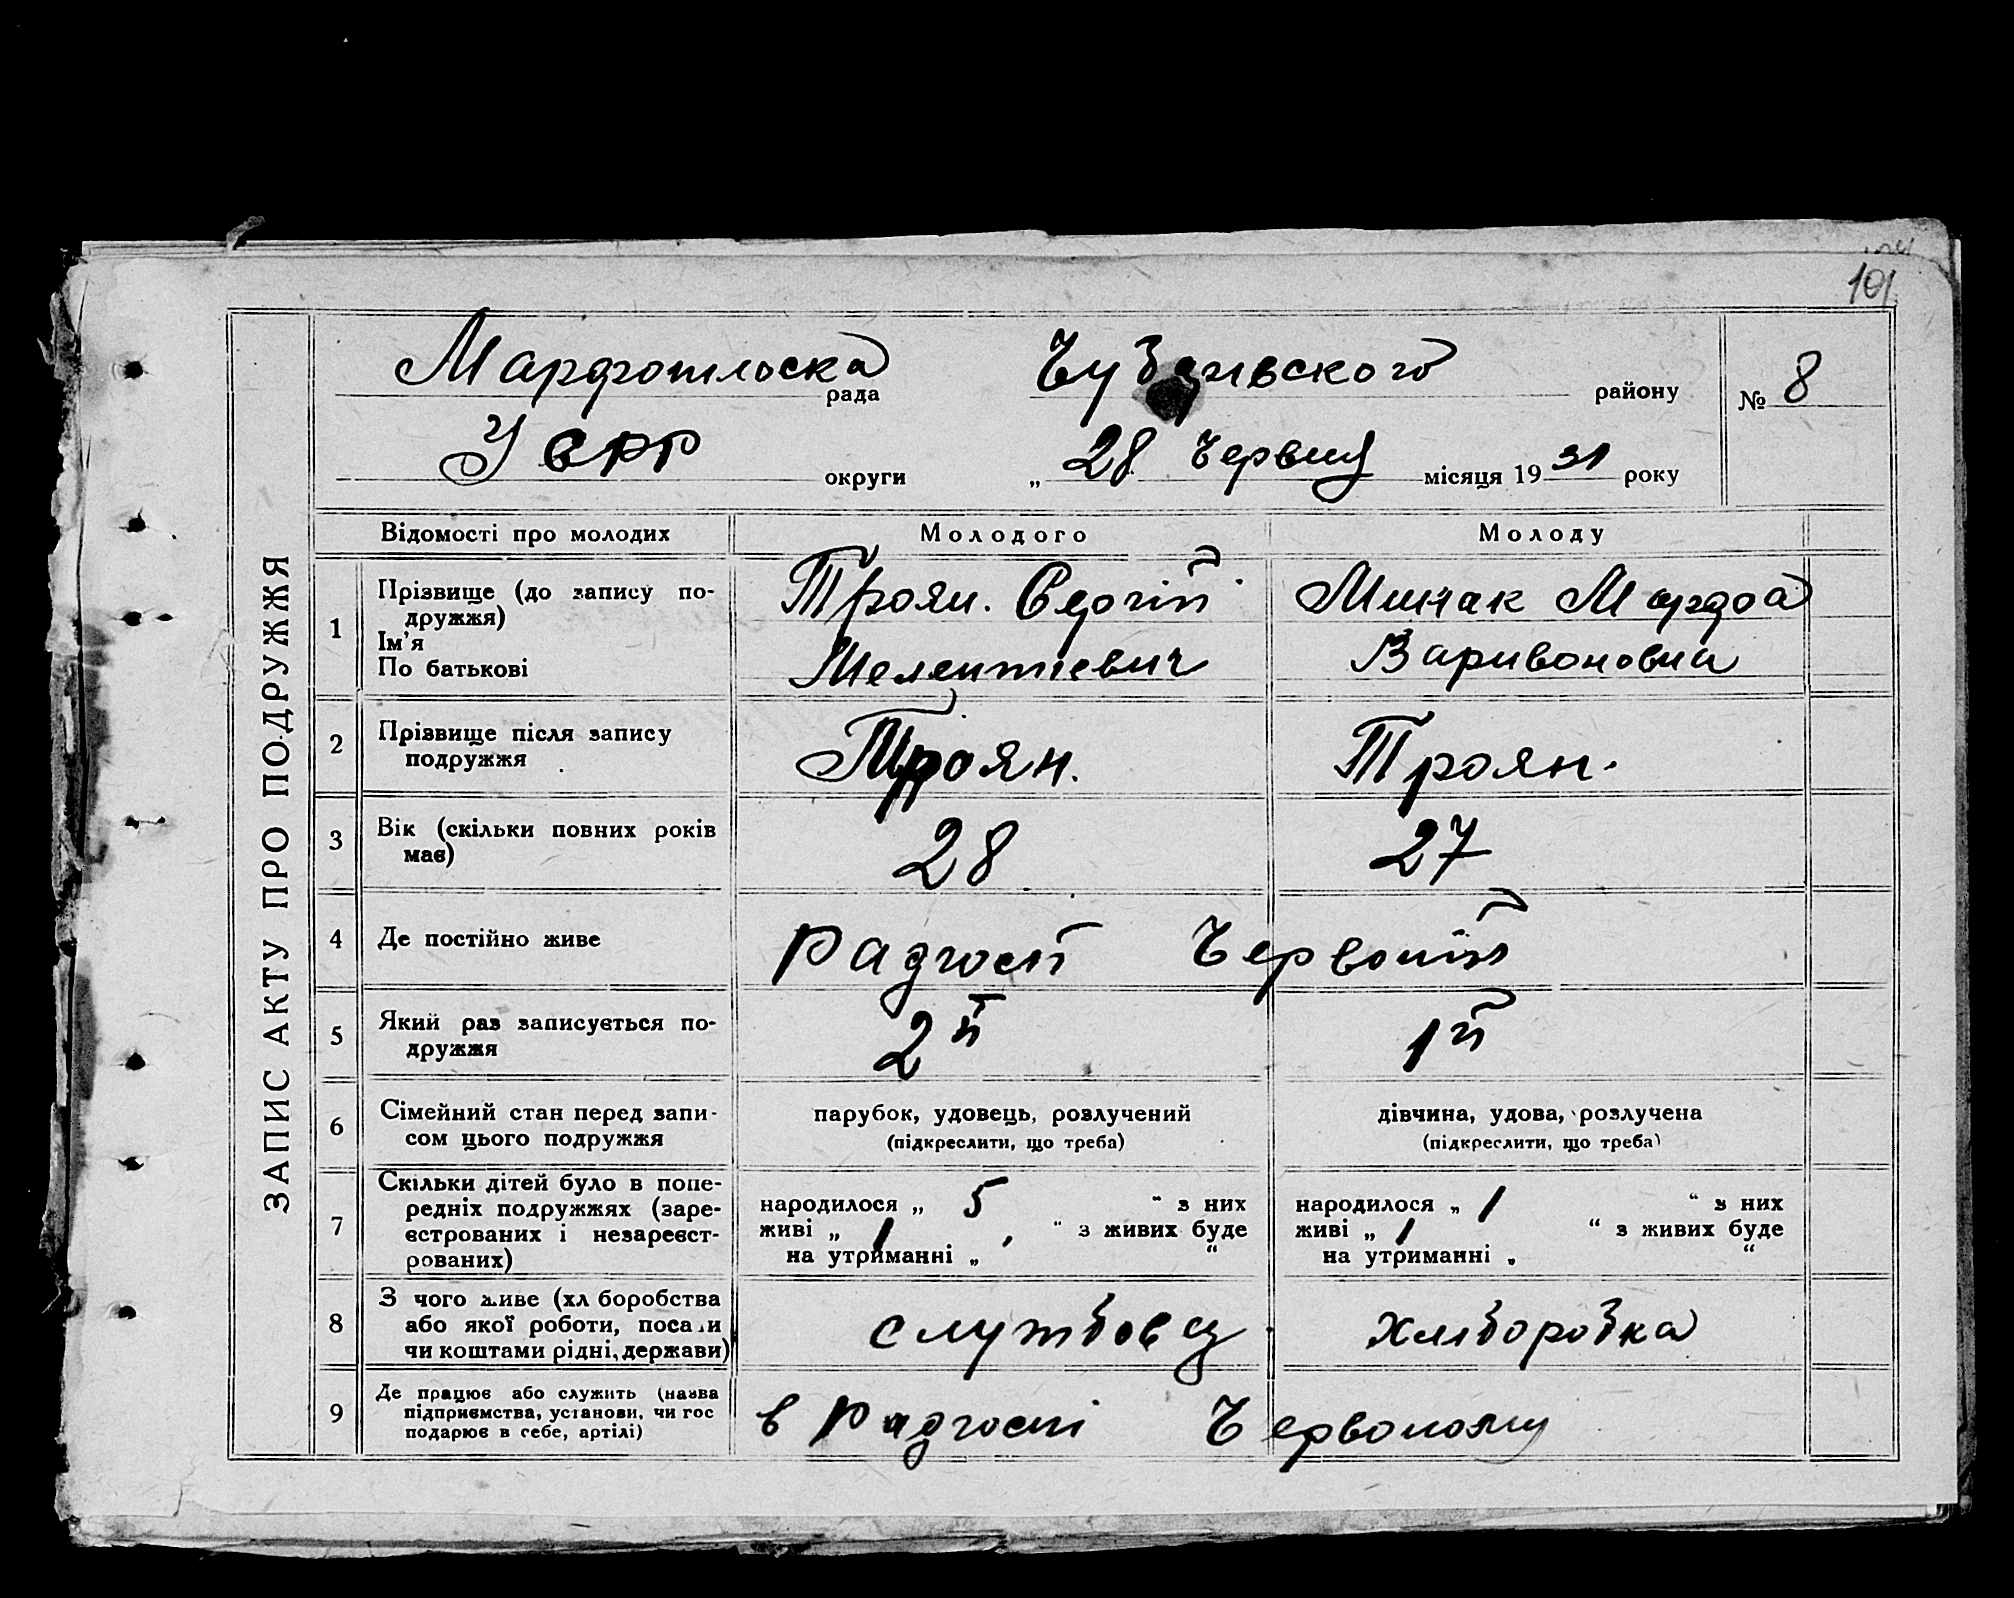 101
Марфопільска рада Чубарівского району № 8
УСРР округи „ 28 Червня місяця 19 31 року
ЗАПИС АКТУ ПРО ПОДРУЖЖЯ
Відомості про молодих Молодого Молоду
1 Прізвище (до запису по-
дружжя)
Ім'я
По батькові
Троян.
Мелентіевич
Марфа
Варивоновна
2 Прізвище після запису
подружжя
Троян. Троян.
3 Вік (скільки повних років
має)
28 27
4 Де постійно живе
Радгосп Червоній
5 Який раз записується по-
дружжя
2й 1й
6 Сімейний стан перед запи-
сом цього подружжя
парубок, удовець, розлучений
(підкреслити, що треба)
дівчина, удова, розлучена
(підкреслити, що треба)
7 Скільки дітей було в попе-
редніх подружжях (заре-
єстрованих і незареєст-
рованих)
народилося „ 5 “ з них
живі „ 1 “ з живих буде
на утриманні „ “
народилося „ 1 “ з них
живі „ 1 “ з живих буде
на утриманні „ “
8 З чого живе (хл боробства
або якої роботи, посади
чи коштами рідні, держави)
службовец хліборобка
9 Де працює або служить (назва
підприємства, установи, чи гос
подарює в себе, артілі)
в Радгоспі Червоному